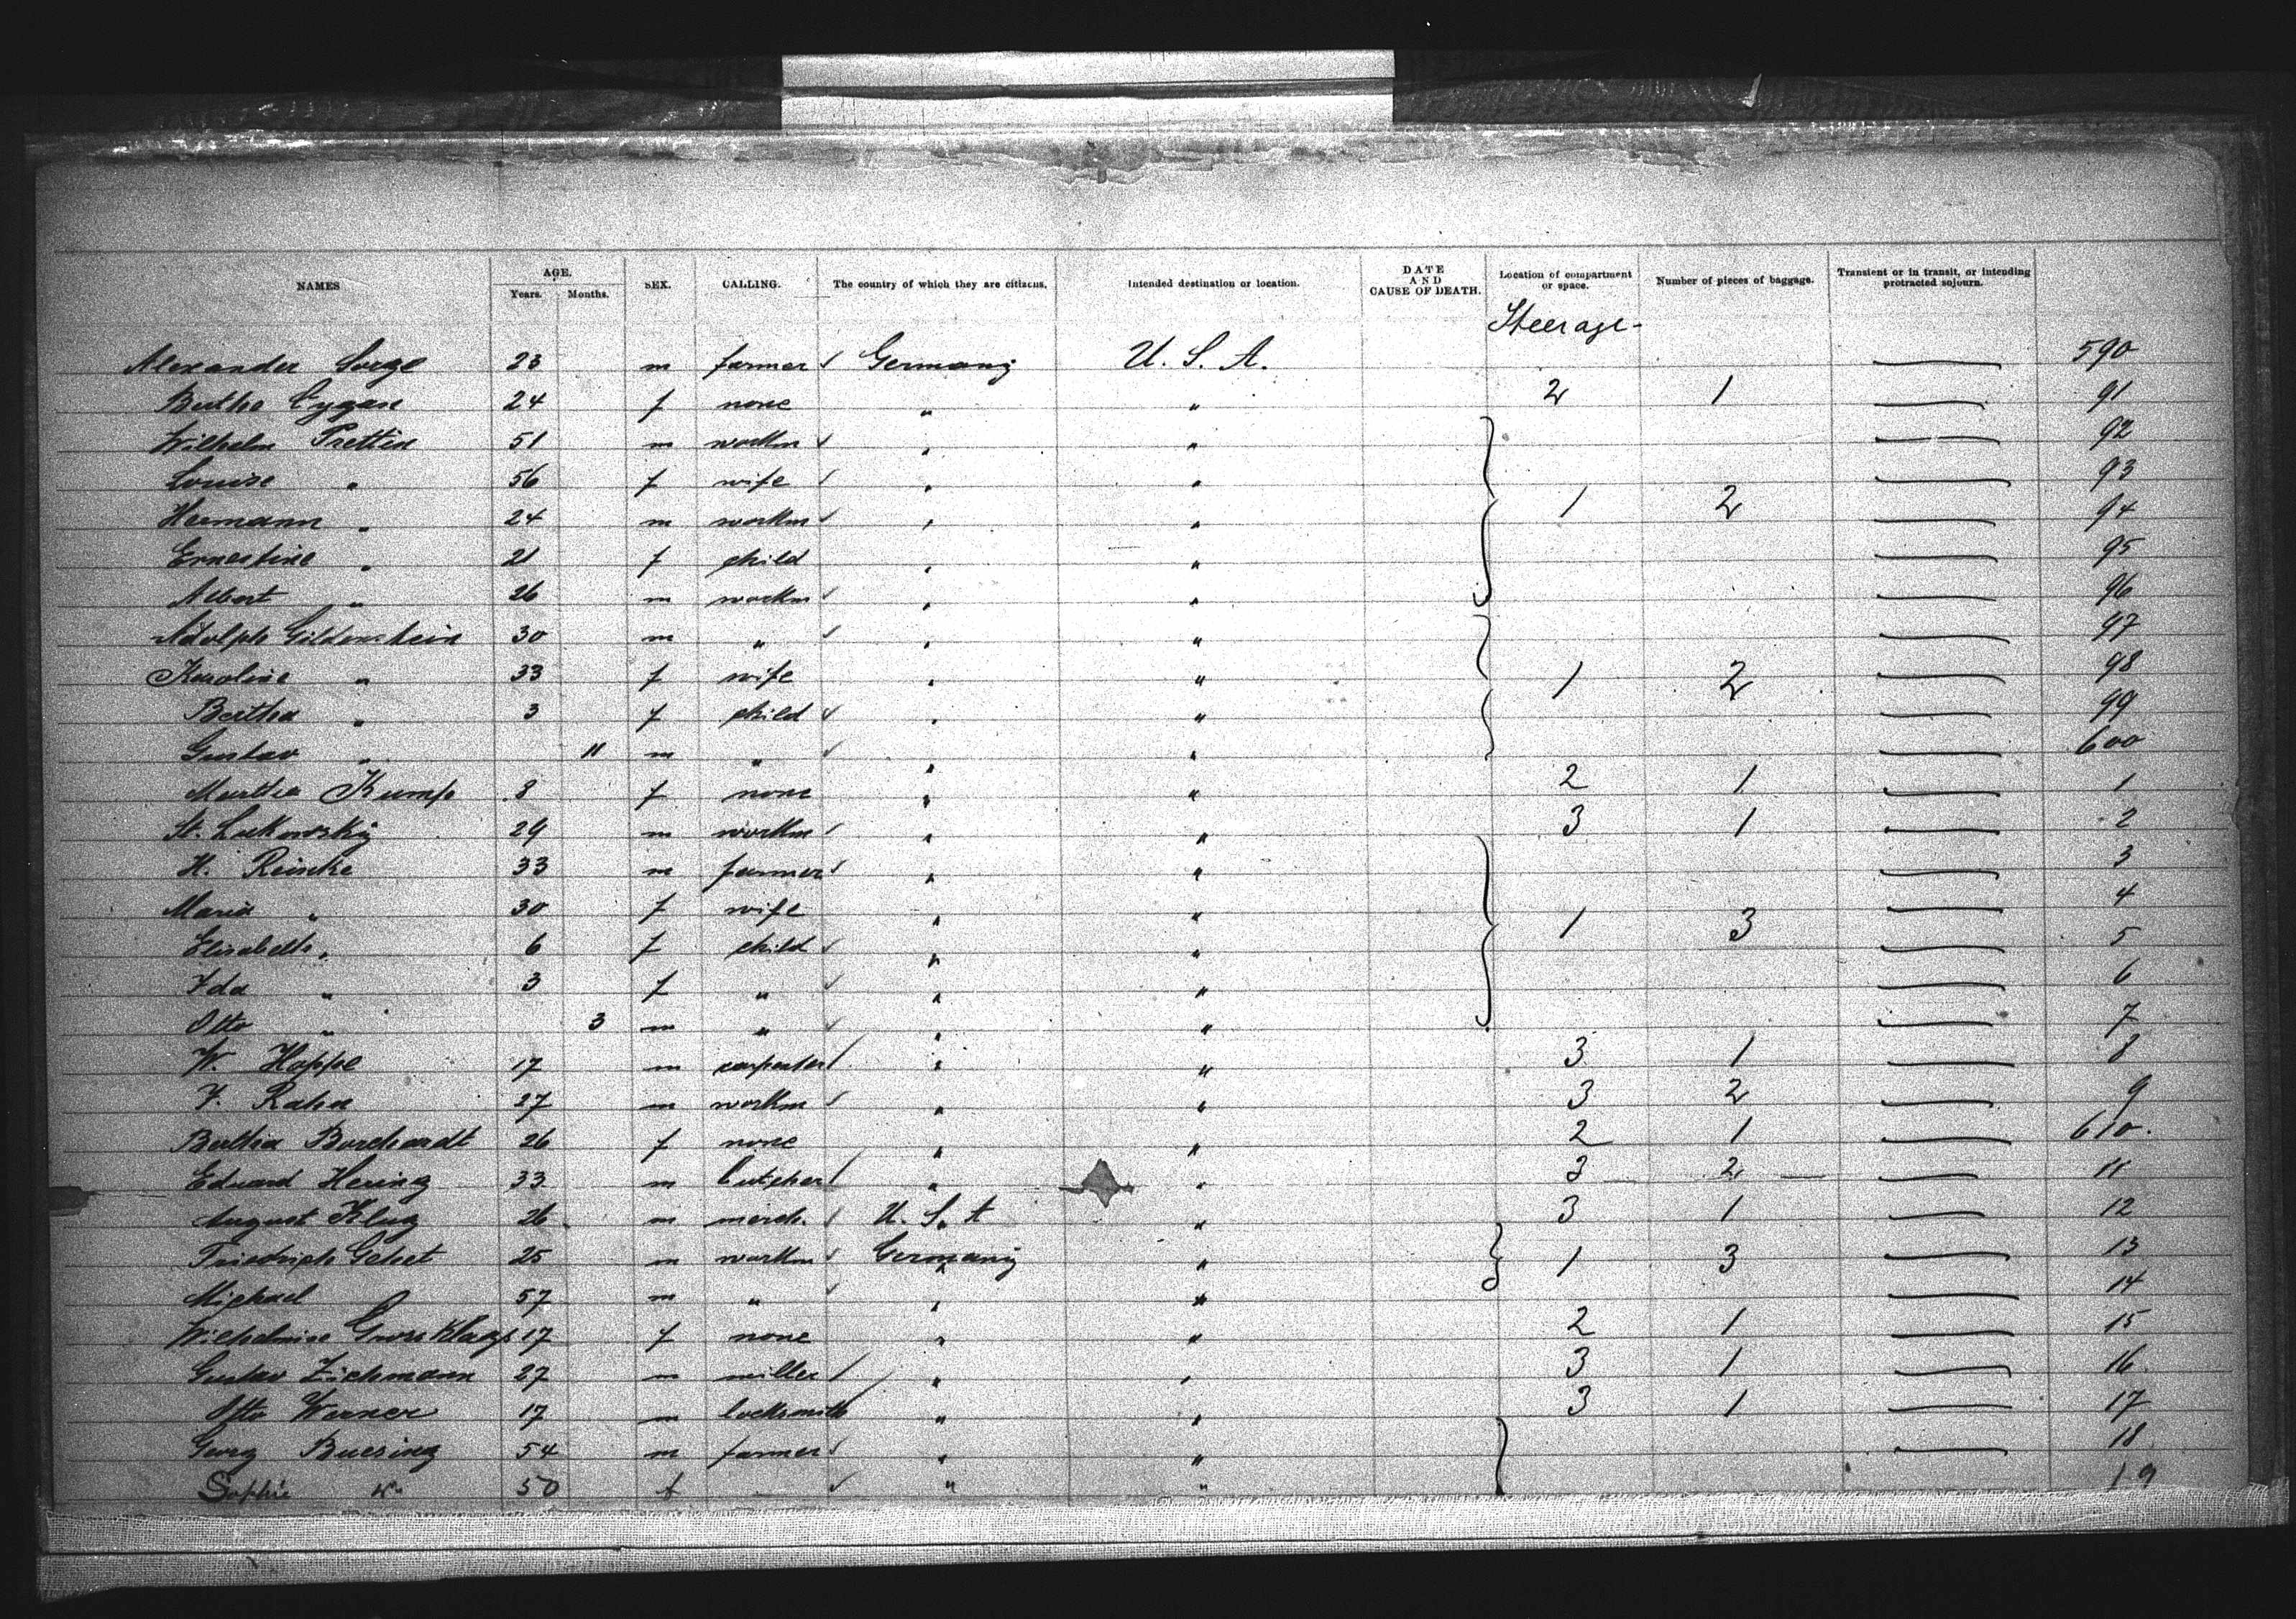 NAMES AGE. SEX. CALLING. The country of which they are citizens. Intended destination or location. DATE AND CAUSE OF DEATH. Location of compartment or space. Number of pieces of baggage. Transient or in transit, or intending protracted sojourn.
Years. Months.
Steerage-
Alexander Sorge 23 m farmer Germany U. S. A. 590
Bertha Cygan 24 f none " " 2 1 91
Wilhelm Prettin 51 m workm " " 92
Louise " 56 f wife " " 93
Hermann " 24 m workm " " 1 2 94
Ernestine " 21 f child " " 95
Albert " 26 m workm " " 96
Adolph Gildenstein 30 m " " " 97
Karoline " 33 f wife " " 1 2 98
Bertha " 3 f child " " 99
Gustav " 11 m " " " 600
Martha Kump 8 f none " " 2 1 1
St. Lukowsky 29 m workm " " 3 1 2
H. Reinke 33 m farmer " " 3
Maria " 30 f wife " " 1 3 4
Elisabeth " 6 f child " " 5
Ida " 3 f " " " 6
Otto " 3 m " " " 7
W. Hoppe 17 m carpenter " " 3 1 8
F. Rahn 27 m workm " " 3 2 9
Bertha Borchardt 26 f none " " 2 1 610.
Eduard Hering 33 m butcher " " 3 2 11
August Klug 26 m merch. U. S. A " 3 1 12
Friedrich 25 m workm Germany " 1 3 13
Michael 57 m " " " 14
Wilhelmine 17 f none " " 2 1 15
Gustav Zichmann 27 m miller " " 3 1 16.
Otto Werner 17 m locksmith " " 3 1 17
Georg Buesing 54 m farmer " " 18
Sophie " 50 f " " 19